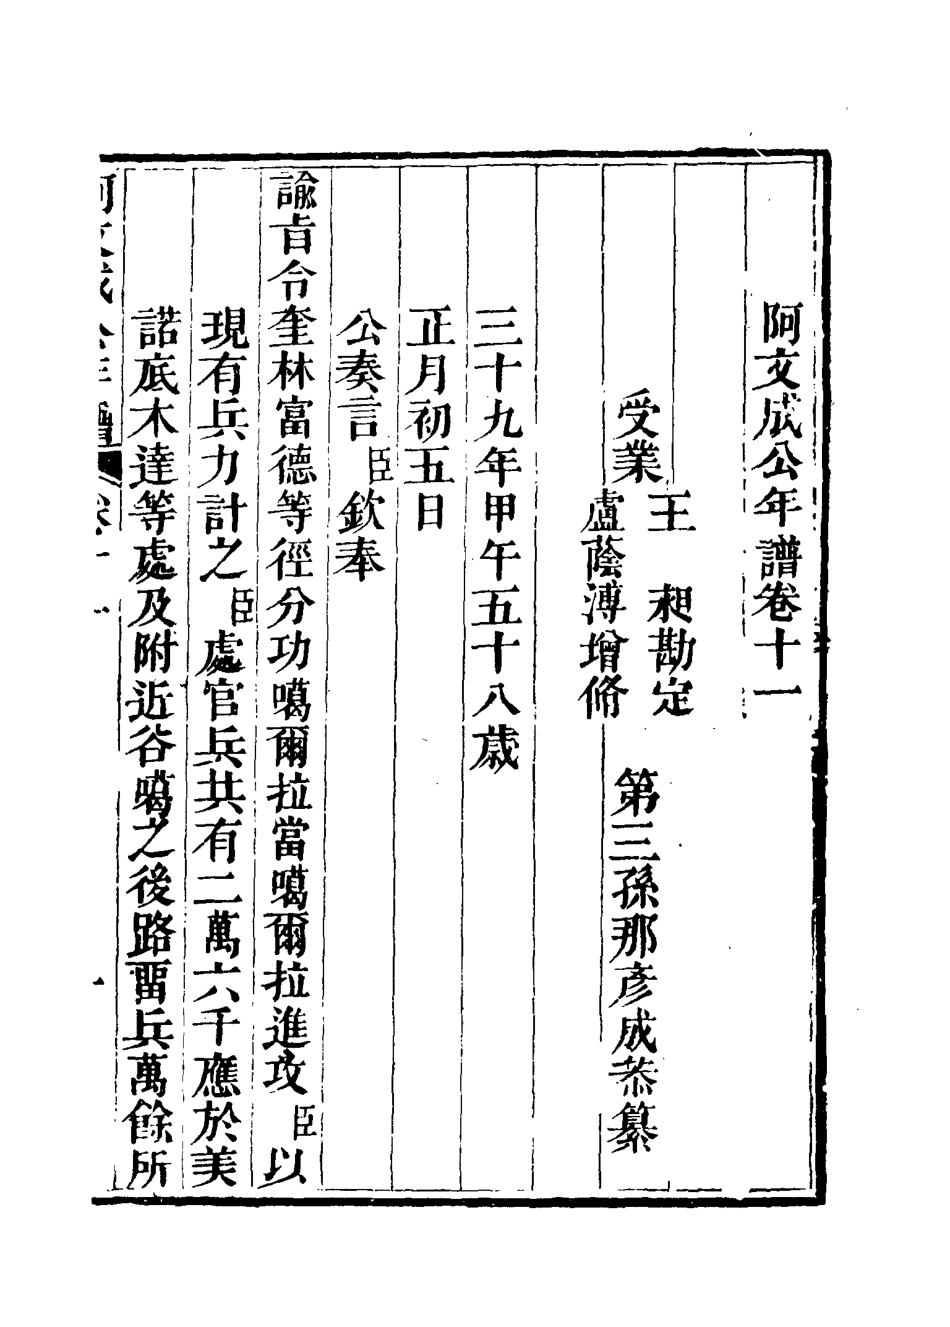 阿文成公年譜卷十一
受業
王　昶勘定
盧蔭溥增脩
第三孫那彥成恭纂
三十九年甲午五十八歲
正月初五日
公奏言臣欽奉
諭旨令奎林富德等徑分功噶爾拉當噶爾拉進攻臣以
現有兵力計之臣處官兵共有二萬六千應於美
諾底木達等處及附近谷噶之後路畱兵萬餘所
阿文成公年譜　卷十一　一